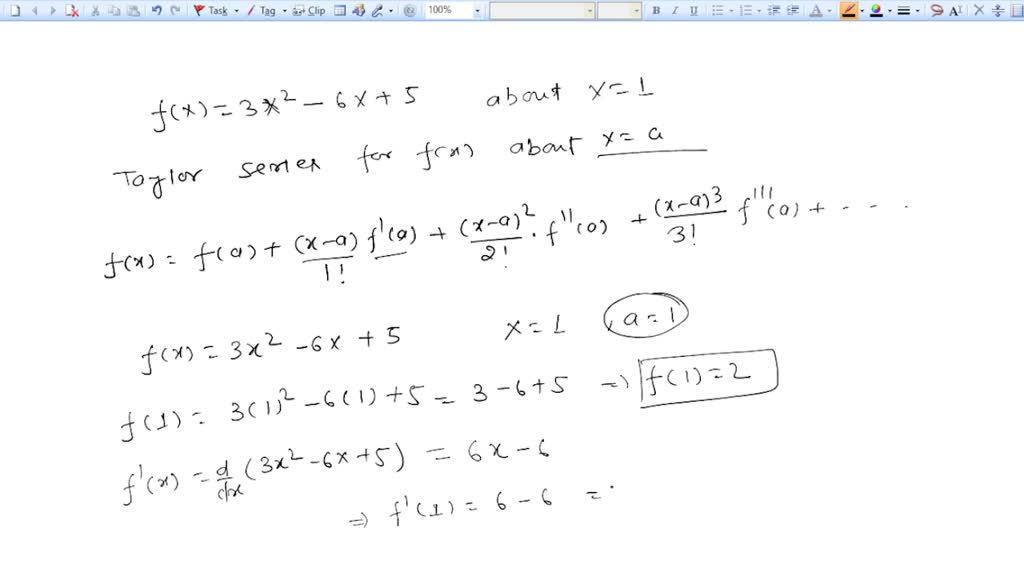 Task Tag Clip 100% B I U
f(x) = 3x² - 6x + 5 about x = 1
Taylor series for f(x) about x = a
f(x) = f(a) + (x-a)/1! f'(a) + (x-a)²/2! · f''(a) + (x-a)³/3! f'''(a) + - - - .
f(x) = 3x² - 6x + 5 x = 1 , a = 1
f(1) = 3(1)² - 6(1) + 5 = 3 - 6 + 5 => f(1) = 2
f'(x) = d/dx (3x² - 6x + 5) = 6x - 6
=> f'(1) = 6 - 6 =